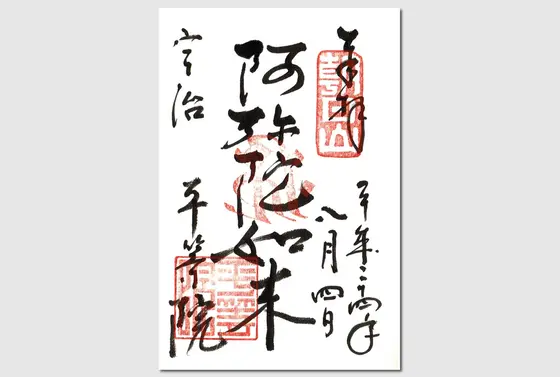 奉拝
朝日山
平成二十四年
八月四日
阿弥陀如来
宇治
平等院